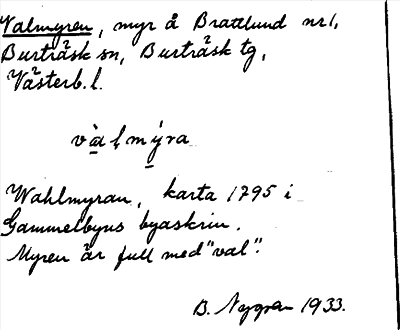 Valmyren, myr å Brattlund nr 1,
Burträsk sn, Burträsk tg,
Västerb. l.
vàl̥mýra
Wahlmyran, karta 1795 i
Gammelbyns byaskrin.
Myren är full med "val".
B. Nygren 1933.